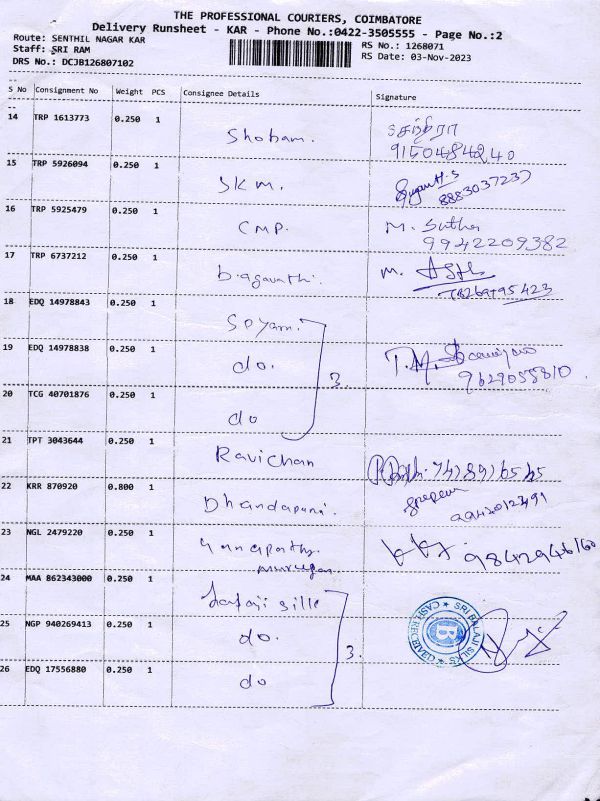 THE PROFESSIONAL COURIERS, COIMBATORE
Delivery Runsheet - KAR - Phone No.:0422-3505555 - Page No.:2
Route: SENTHIL NAGAR KAR
RS No.: 1268071
Staff: SRI RAM
RS Date: 03-Nov-2023
DRS No.: DCJB126807102
S No Consignment No Weight PCS Consignee Details Signature
14 TRP 1613773 0.250 1 Shobam.
9150484240
15 TRP 5926094 0.250 1 SKM.
8883037237
16 TRP 5925479 0.250 1 CMP. M. Sutha
9942209382
17 TRP 6737212 0.250 1 bagavathi. M.
18 EDQ 14978843 0.250 1 Soyam.
19 EDQ 14978838 0.250 1 do. T.M.
3 9629055810
20 TCG 40701876 0.250 1 do
21 TPT 3043644 0.250 1 Ravichan
22 KRR 870920 0.800 1 Dhandapani.
23 NGL 2479220 0.250 1 Ganapathy 9842946160
murugan
24 MAA 862343000 0.250 1 silk
25 NGP 940269413 0.250 1 do. 3.
SRI BALAJI SILKS ★ CASH RECEIVED ★
B
26 EDQ 17556880 0.250 1 do